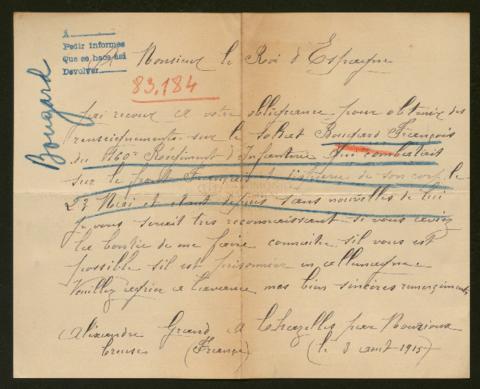 A
Pedir informes
Que se haga así
Devolver
Bougard
A Monsieur le Roi d'Espagne
83.184
j'ai recour a votre obligeance pour obtenir des
renseignements sur le soldat Bouchard François
du 160e Régiment d'Infanterie qui combatait
sur le front Français et disparu de son corp le
23 Mai et etant depuis sans nouvelles de lui
Je vous serait tres reconnaissant si vous aviez
la bonté de me faire connaitre s'il vous est
possible s'il est prisonnier en allemagne
Veuillez agreer a l'avance mes bien sincères remerciments
Alixandre Grand A par Bouzioux
Creuse (France) (le 3 aout 1915)